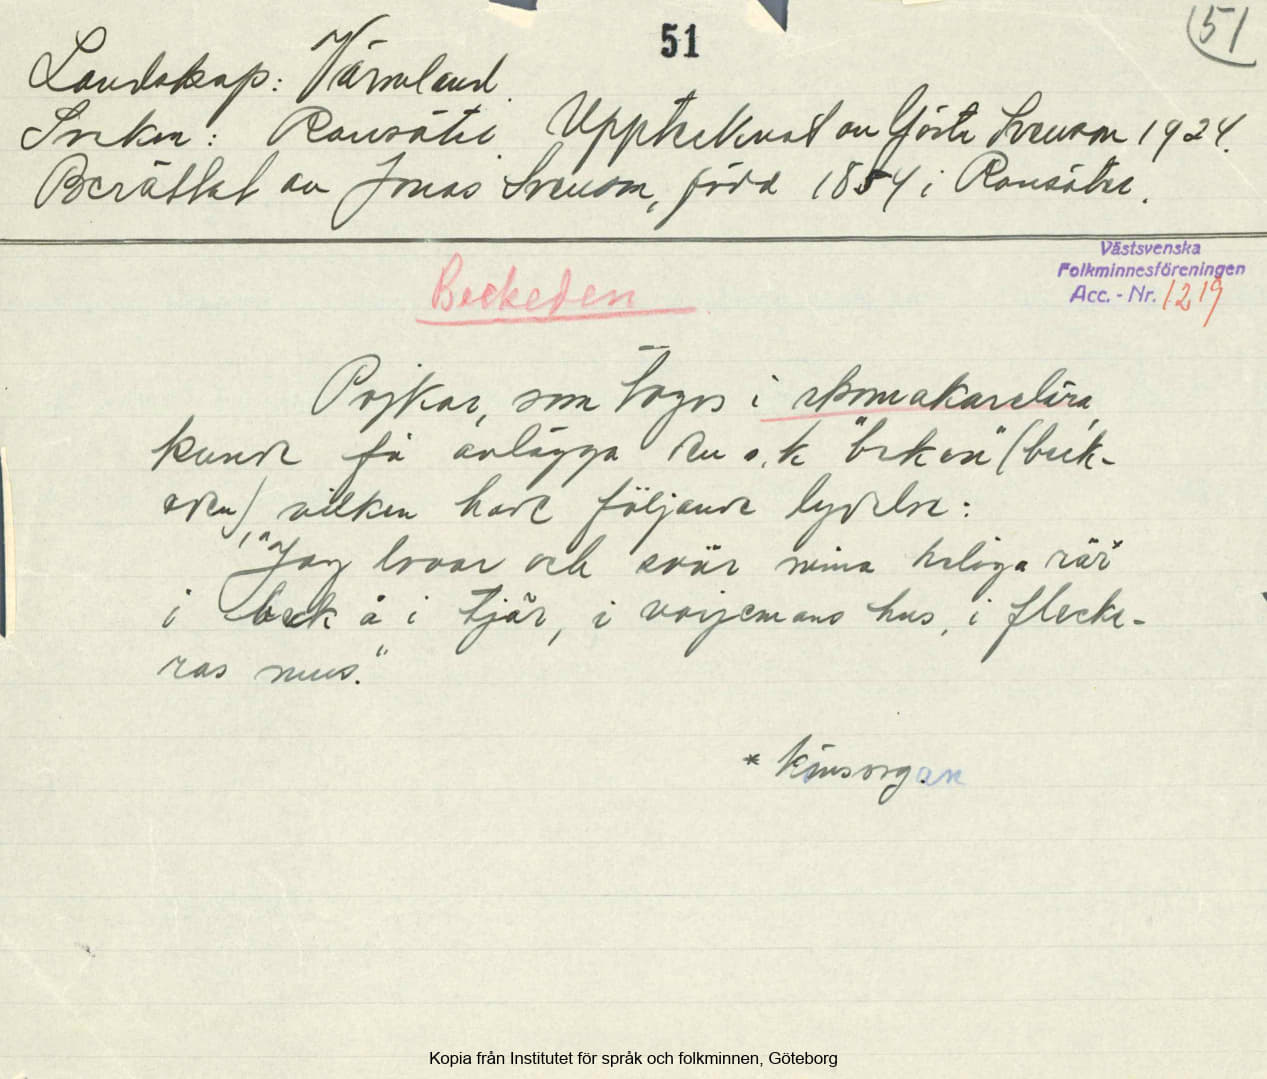 51
51
Landskap: Värmland.
Socken: Ransäter. Upptecknat av Gösta Svenson 1924.
Berättat av Jonas Svenson, född 1854 i Ransäter.
Västsvenska
Folkminnesföreningen
Acc. - Nr. 1219
Beckeden
Pojkar, som togos i skomakarelära,
kunde få avlägga den s.k. "beken" (beck-
eden), vilken hade följande lydelse:
"Jag lovar och svär mina heliga rär*
i beck å i tjär, i
hus, i flecke-
ras mus."
* könsorgan
Kopia från Institutet för språk och folkminnen, Göteborg